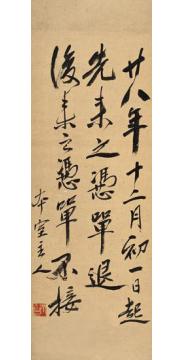 廿八年十二月初一日起
先來之憑單退
後來之憑單不接
本室主人